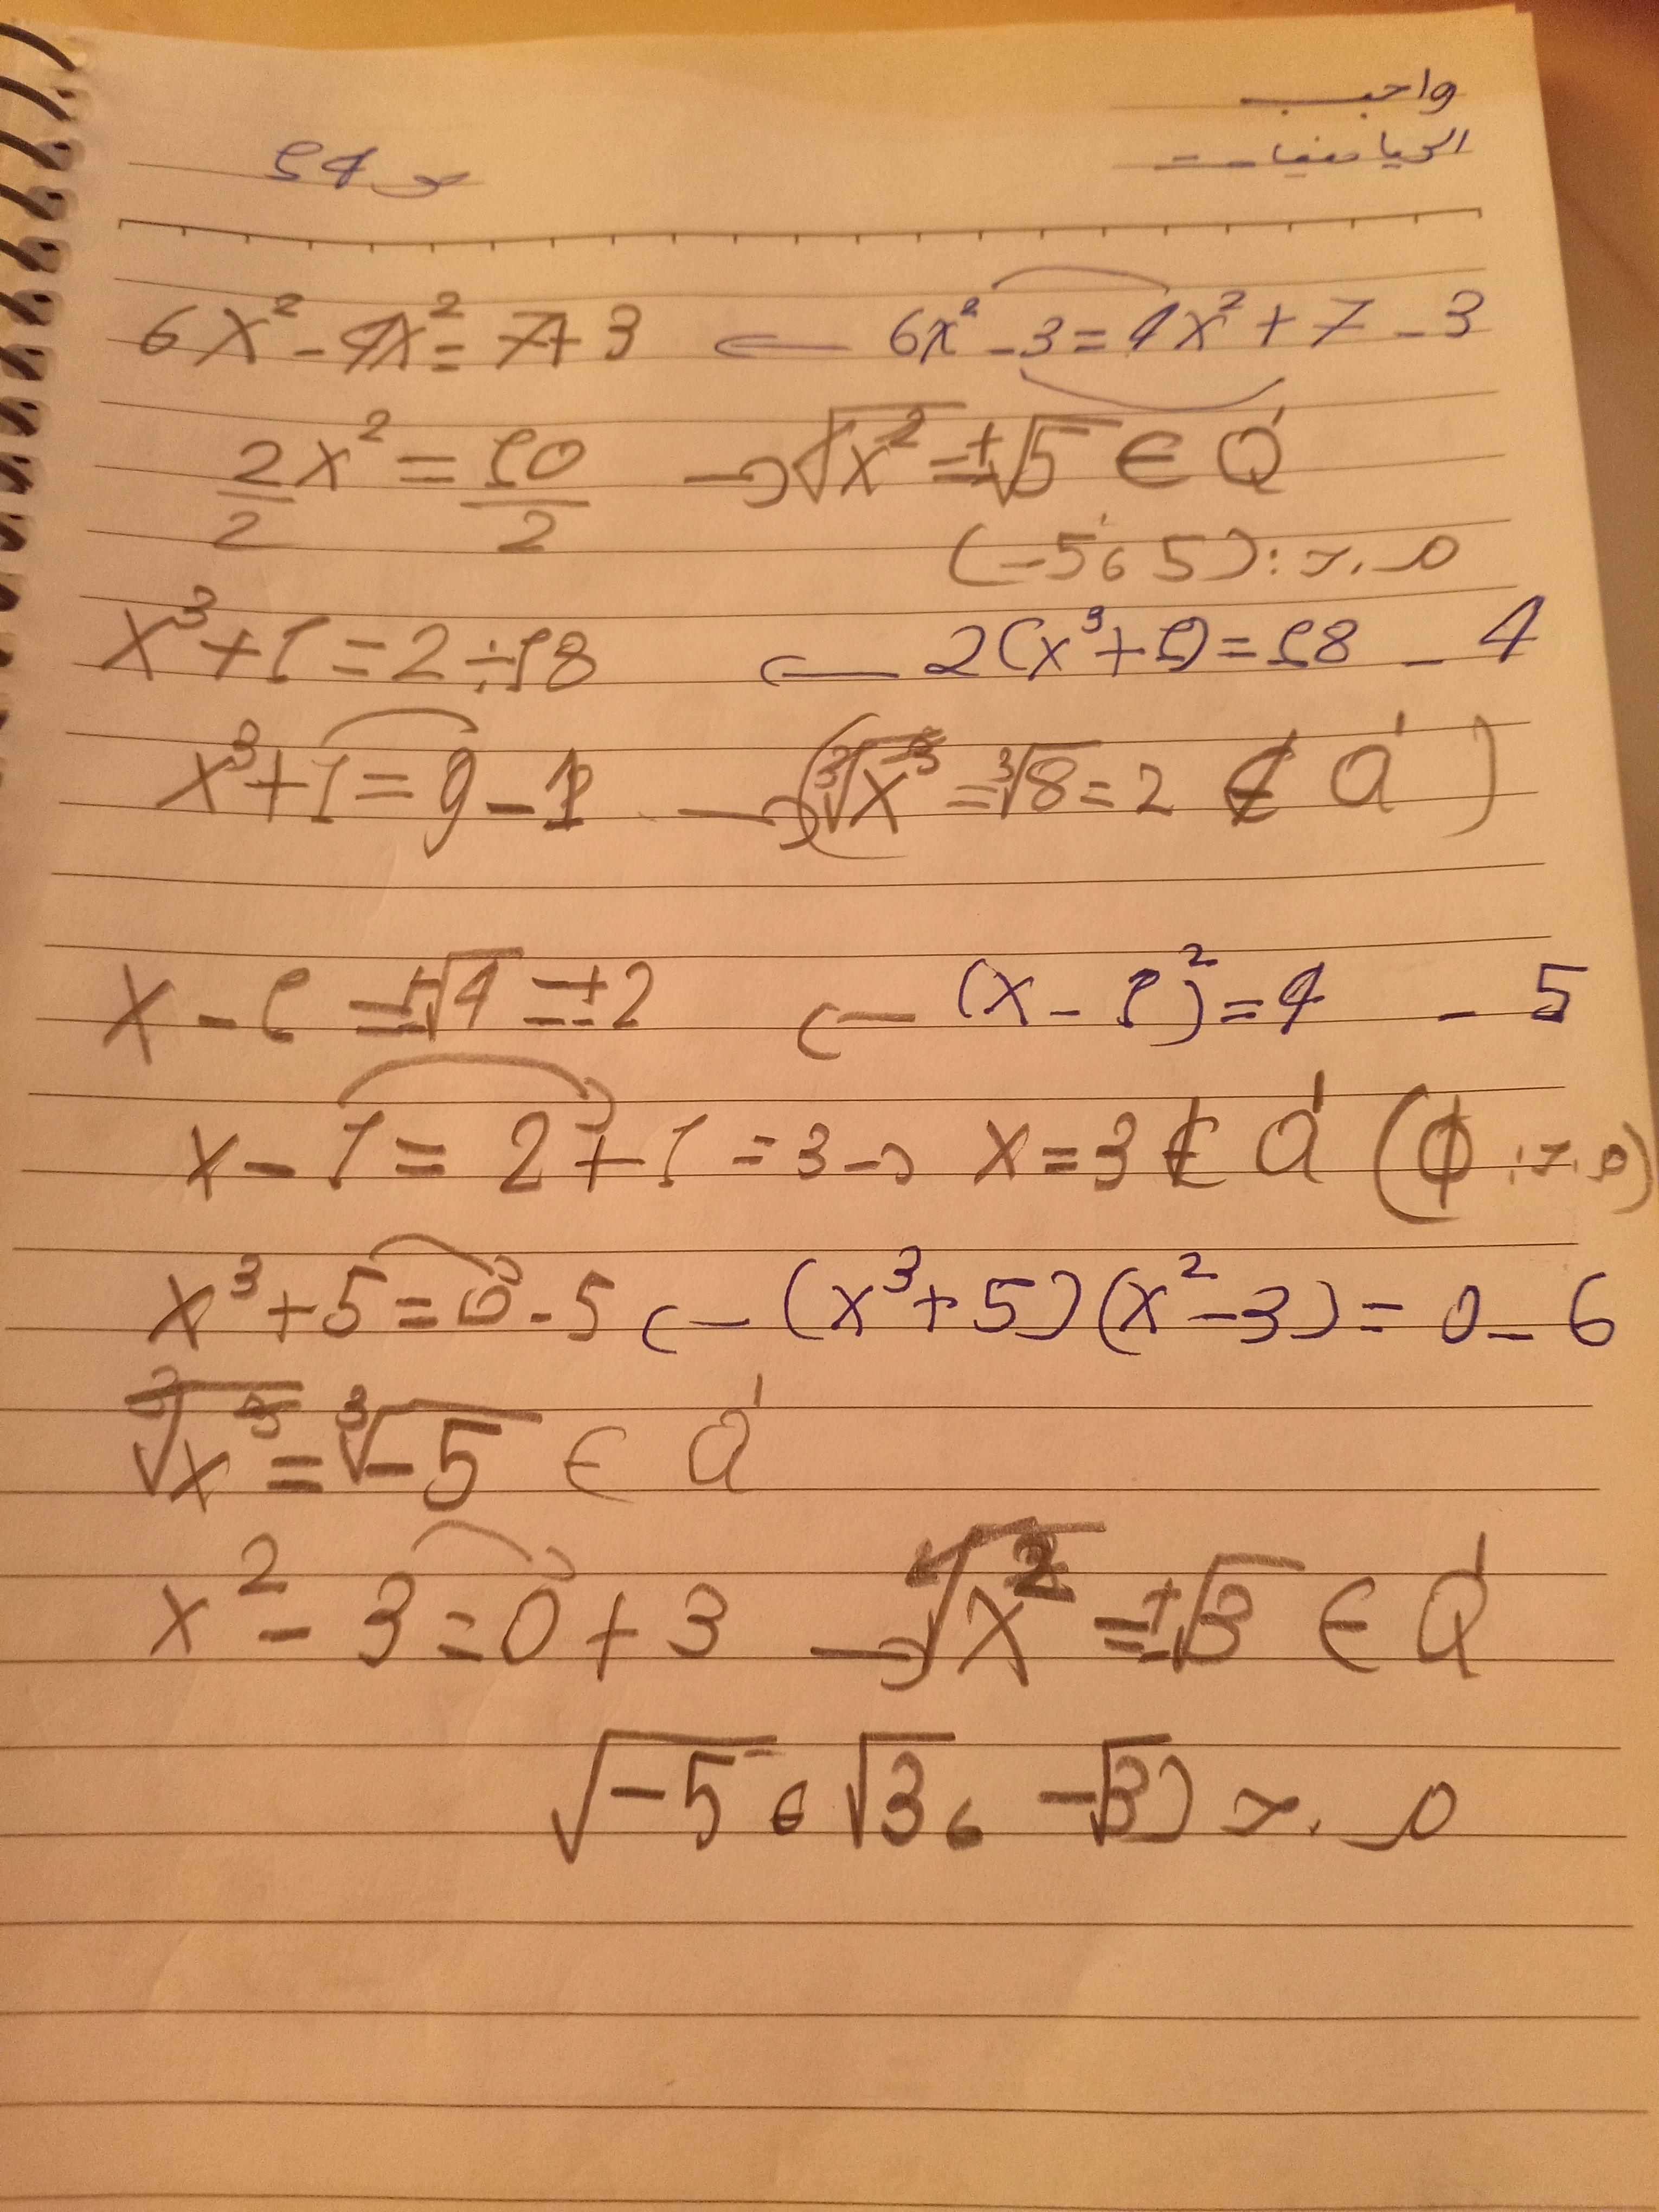 واجب
الرياضيات
ص 14
3 - 6x² - 3 = 4x² + 7 ← 6x² - 4x² = 7 + 3
2x²/2 = 10/2 → √x² = ±√5 ∈ Q'
م.ح : (5 ، -5)
4 - 2(x³ + 1) = 18 ← x³ + 1 = 2 ÷ 18
x³ + 1 = 9 - 1 → (∛x³ = ∛8 = 2 ∉ Q')
5 - (x - 1)² = 4 ← x - 1 = ±√4 = ±2
x - 1 = 2 + 1 = 3 → x = 3 ∉ Q' (م.ح : ϕ)
6 - (x³ + 5)(x² - 3) = 0 ← x³ + 5 = 0 - 5
∛x³ = ∛-5 ∈ Q'
x² - 3 = 0 + 3 → √x² = ±√3 ∈ Q'
م.ح (-√3 ، √3 ، √-5